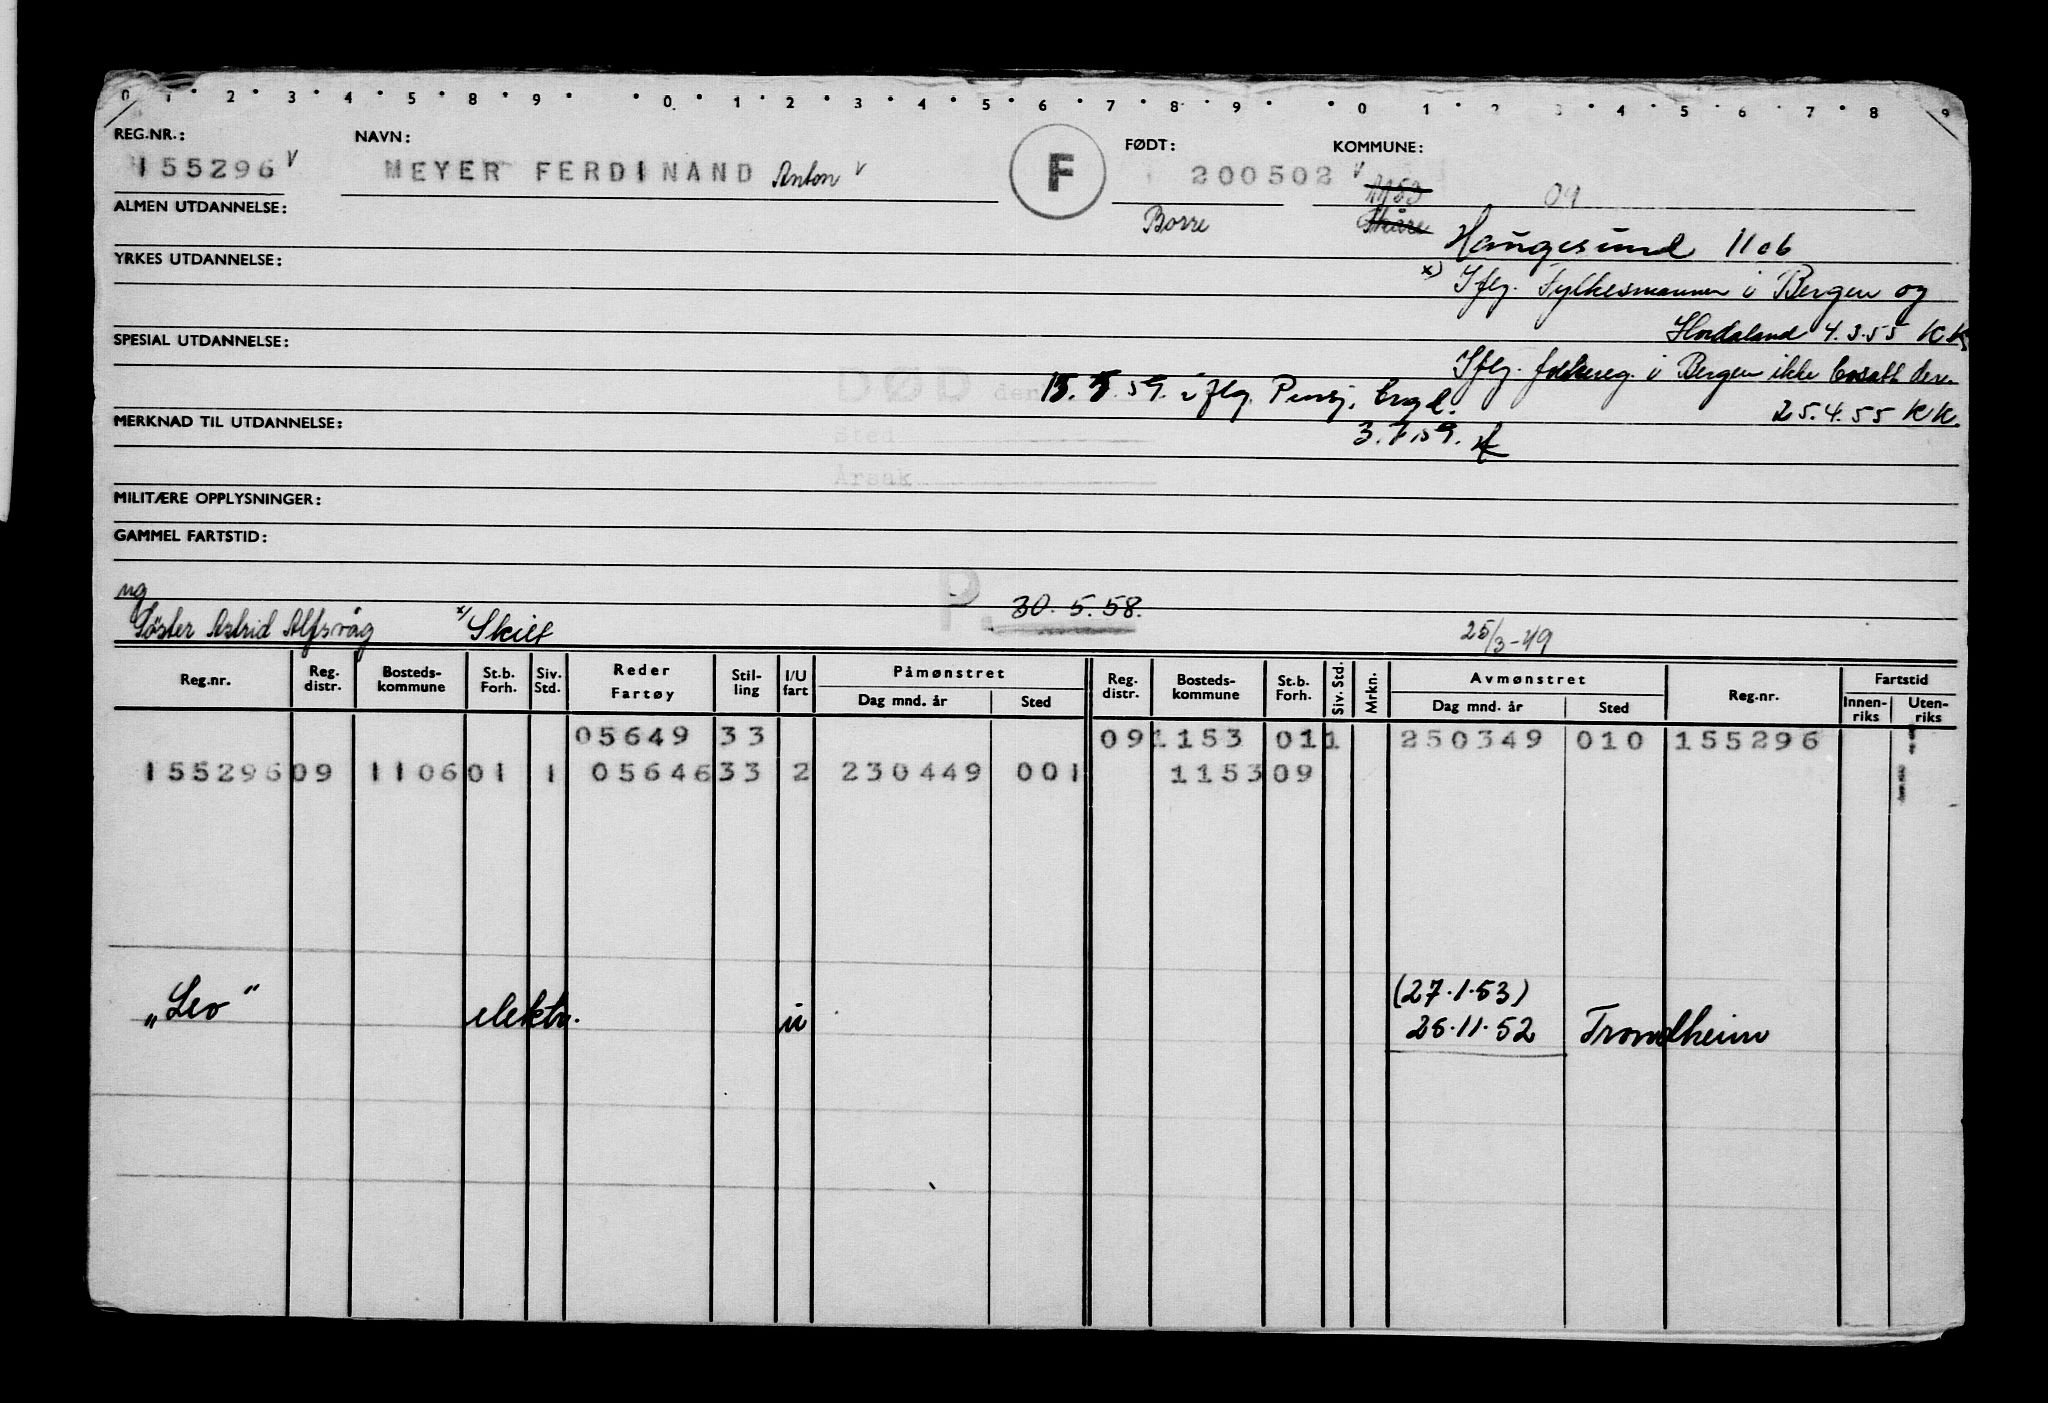 0 1 2 3 4 5 8 9 0 1 2 3 4 5 6 7 8 9 0 1 2 3 4 5 6 7 8 9
REG.NR.: NAVN: F FØDT: KOMMUNE:
155296 V MEYER FERDINAND Anton V 200502 V 1153 09
ALMEN UTDANNELSE: Borre Skåre
Haugesund 1106
YRKES UTDANNELSE: x) Iflg. Fylkesmannen i Bergen og
Hordaland 4.3.55 KK
SPESIAL UTDANNELSE: Iflg. folkereg. i Bergen ikke bosatt der.
DØD den 15.5.59. iflg. Pensj.
25.4.55 KK.
MERKNAD TIL UTDANNELSE: Sted 3.7.59.
Årsak
MILITÆRE OPPLYSNINGER:
GAMMEL FARTSTID:
ug P. 30.5.58.
Søster Astrid Alfsvåg x/ Skilt 25/3-49
Reg.nr. Reg. distr. Bosteds-kommune St.b. Forh. Siv. Std. Reder Fartøy Stil-ling I/U fart Påmønstret Dag mnd. år Sted Reg. distr. Bosteds-kommune St.b. Forh. Siv. Std. Mrkn. Avmønstret Dag mnd. år Sted Reg.nr. Fartstid Innen-riks Uten-riks
05649 33 09 1153 01 1 250349 010 155296
155296 09 1106 01 1 05646 33 2 230449 001 1153 09
(27.1.53)
„Leo" elektr. u 26.11.52 Trondheim